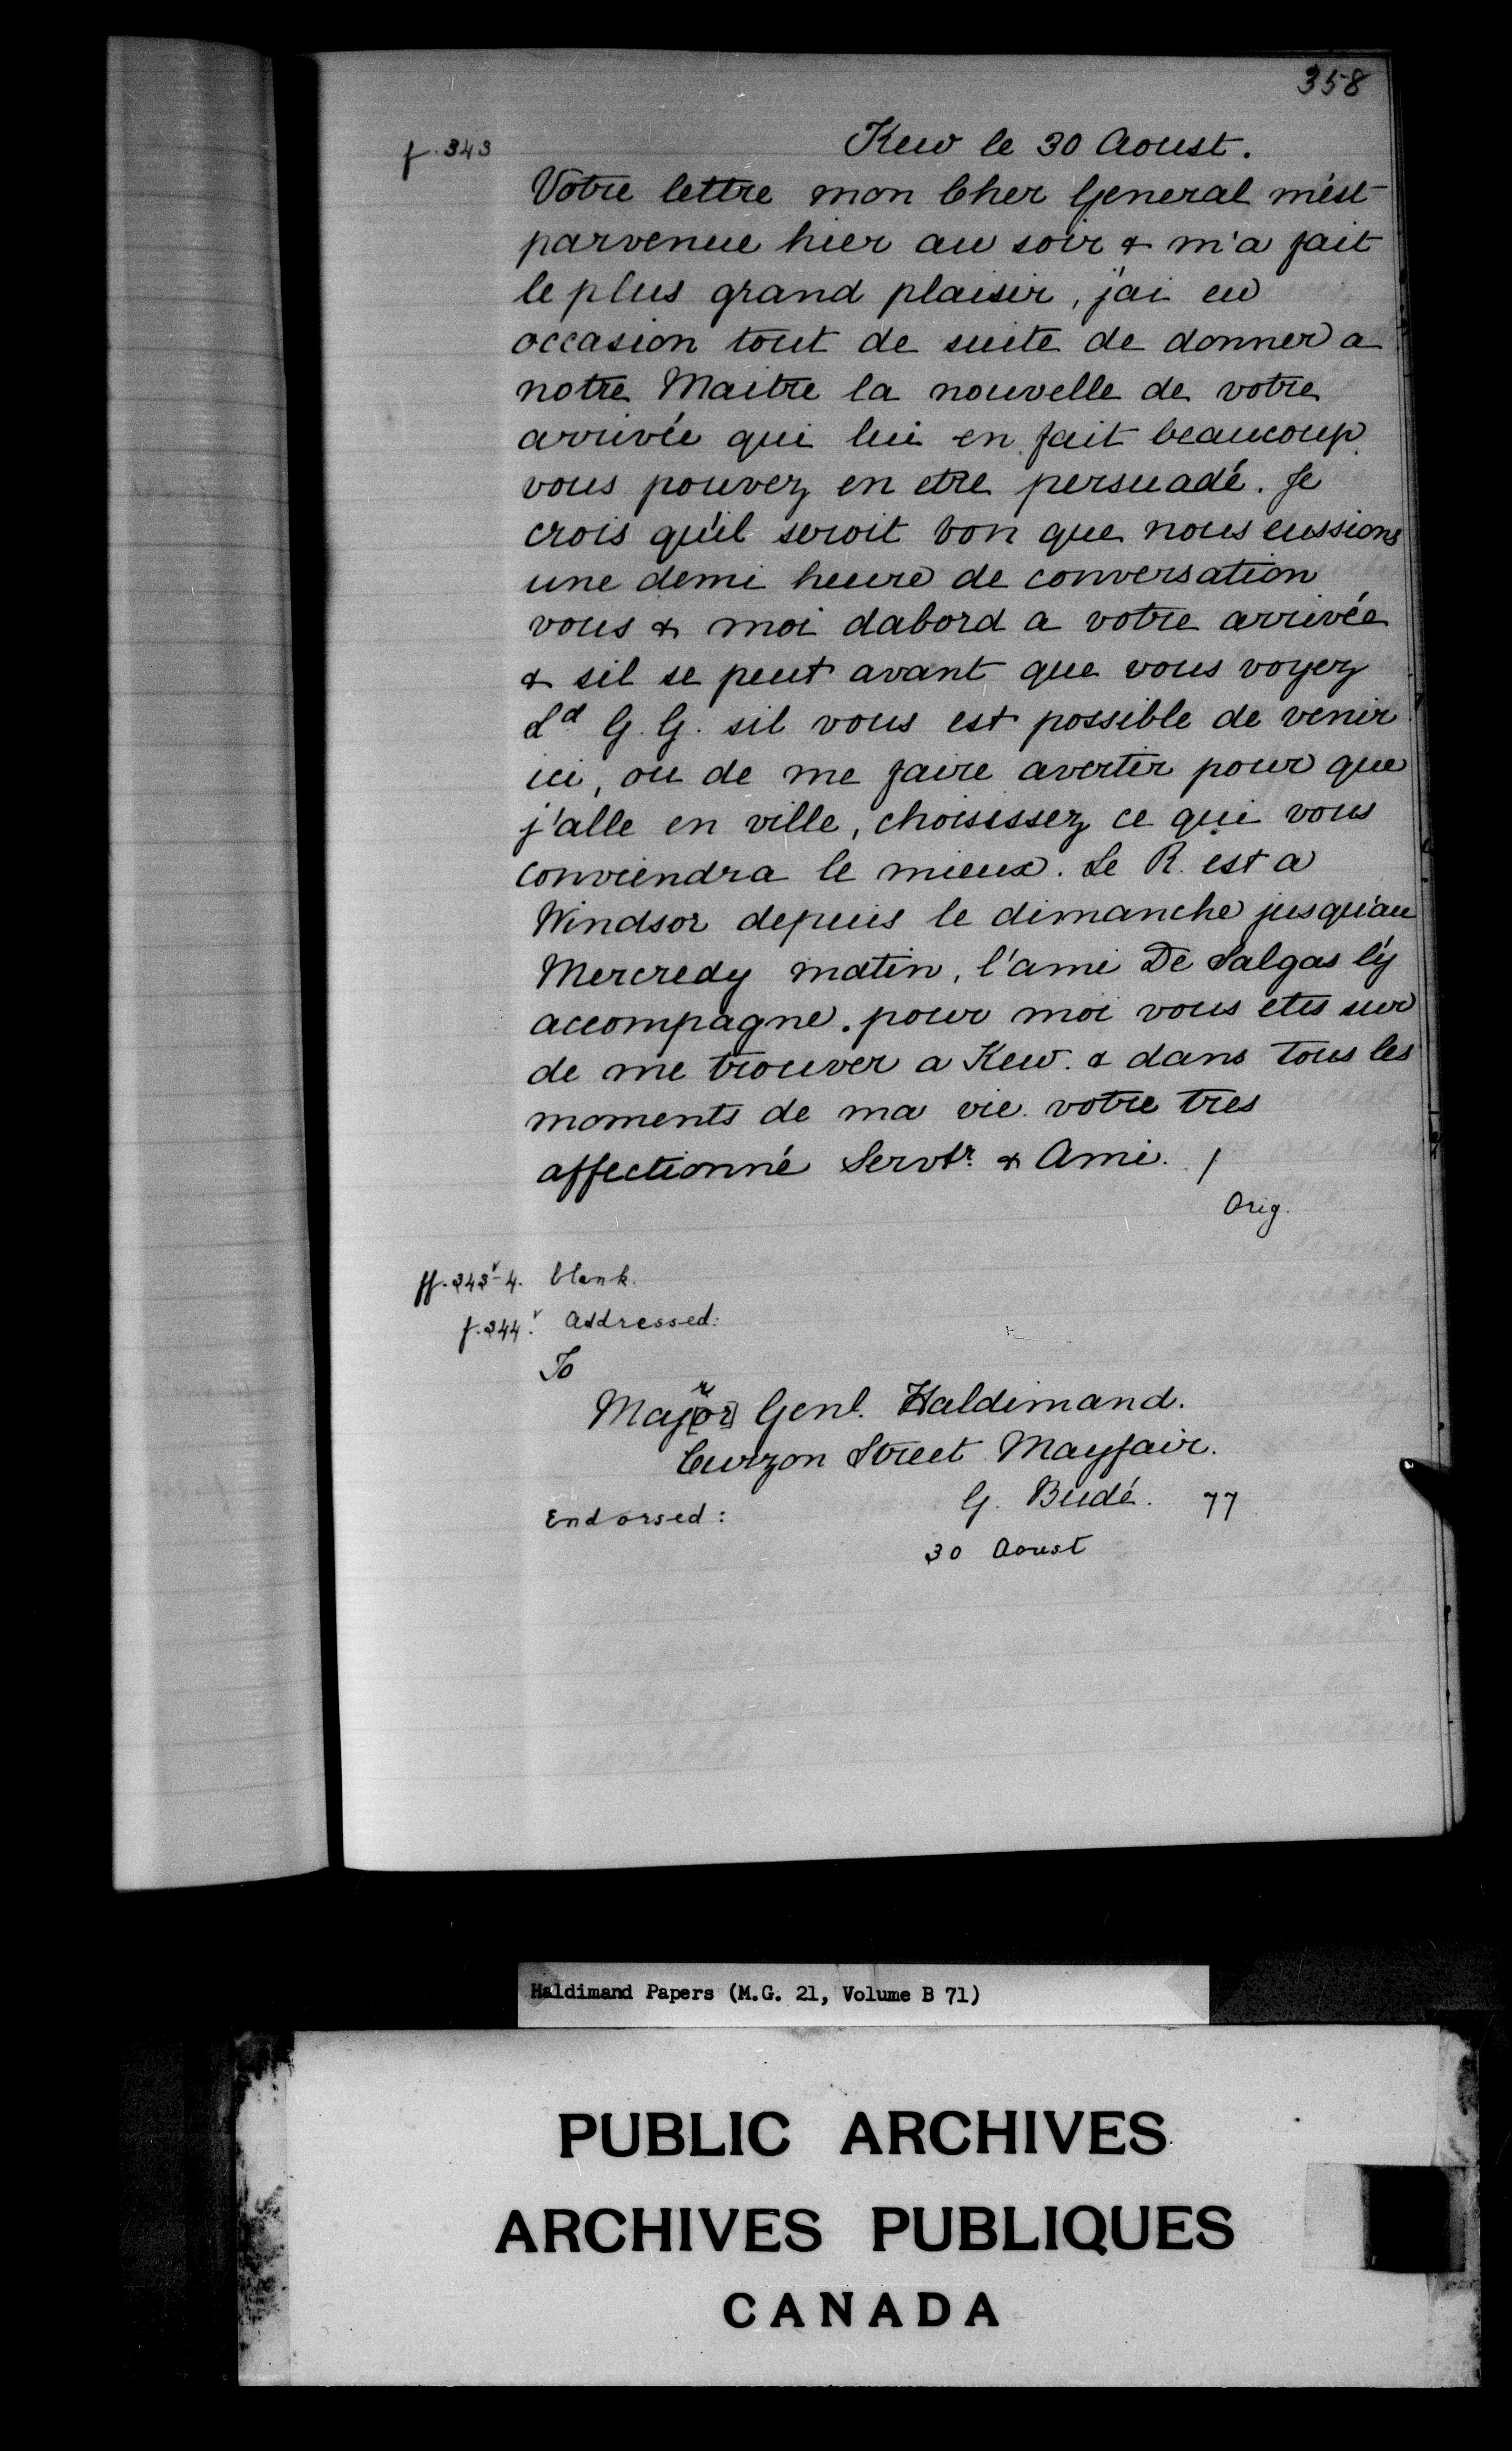 358
f. 343
Kew le 30 Aoust.
Votre lettre mon Cher General m'est
parvenue hier au soir & m'a fait
le plus grand plaisir, j'ai eu
occasion tout de suite de donner a
notre Maitre la nouvelle de votre
arrivée qui lui en fait beaucoup
vous pouvez en etre persuadé. Je
crois qu'il seroit bon que nous eussions
une demi heure de conversation
vous & moi dabord a votre arrivée
& sil se peut avant que vous voyez
Ld G. G. sil vous est possible de venir
ici, ou de me faire avertir pour que
j'alle en ville, choisissez ce qui vous
conviendra le mieux. Le R. est a
Windsor depuis le dimanche jusqu'au
Mercredy matin, l'ami De Salgas l'y
accompagne. pour moi vous etes sur
de me trouver a Kew. & dans tous les
moments de ma vie. votre tres
affectionné Servtr. & Ami. /
Orig.
ff. 343v-4. blank.
f. 344v. Addressed:
To
Majr[or] Genl. Haldimand.
Curzon Street Mayfair.
Endorsed: G. Budé. 77
30 Aoust
Haldimand Papers (M.G. 21, Volume B 71)
PUBLIC ARCHIVES
ARCHIVES PUBLIQUES
CANADA